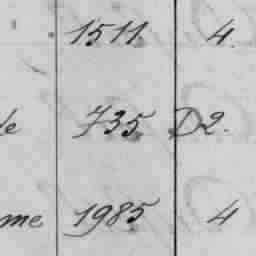 1511 4.
le 735 D2.
me 1985 4